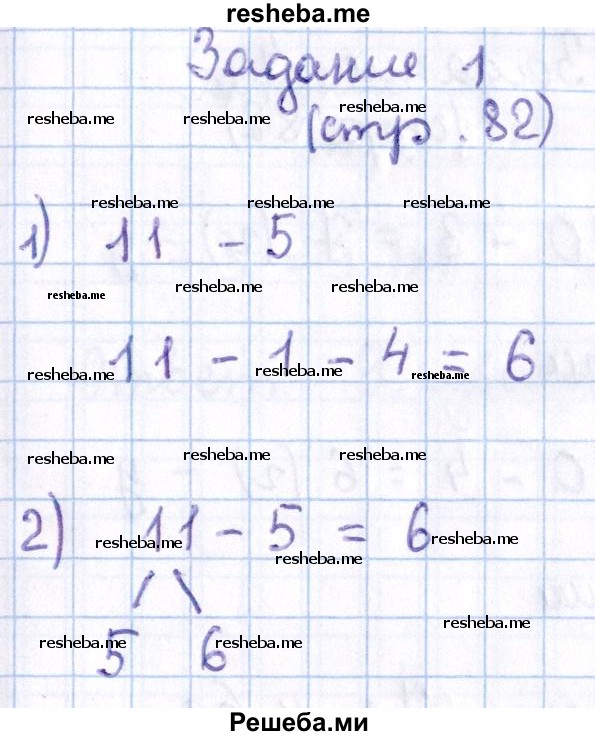 resheba.me
Задание 1
resheba.me resheba.me resheba.me
(стр. 82)
resheba.me resheba.me resheba.me
1) 11 - 5
resheba.me resheba.me resheba.me
11 - 1 - 4 = 6
resheba.me resheba.me resheba.me
resheba.me resheba.me resheba.me
2) 11 - 5 = 6
resheba.me resheba.me resheba.me
resheba.me
5 6
resheba.me resheba.me
Решеба.ми